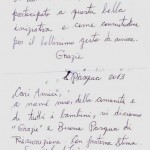 partecipato a questa bella
iniziativa e come
per il bellissimo gesto di amore.
Grazie
Pasqua 2013
Cari Amici,
a nome mio, della comunità e
di tutti i bambini, vi diciamo
"Grazie" e Buona Pasqua di
Resurrezione. Con